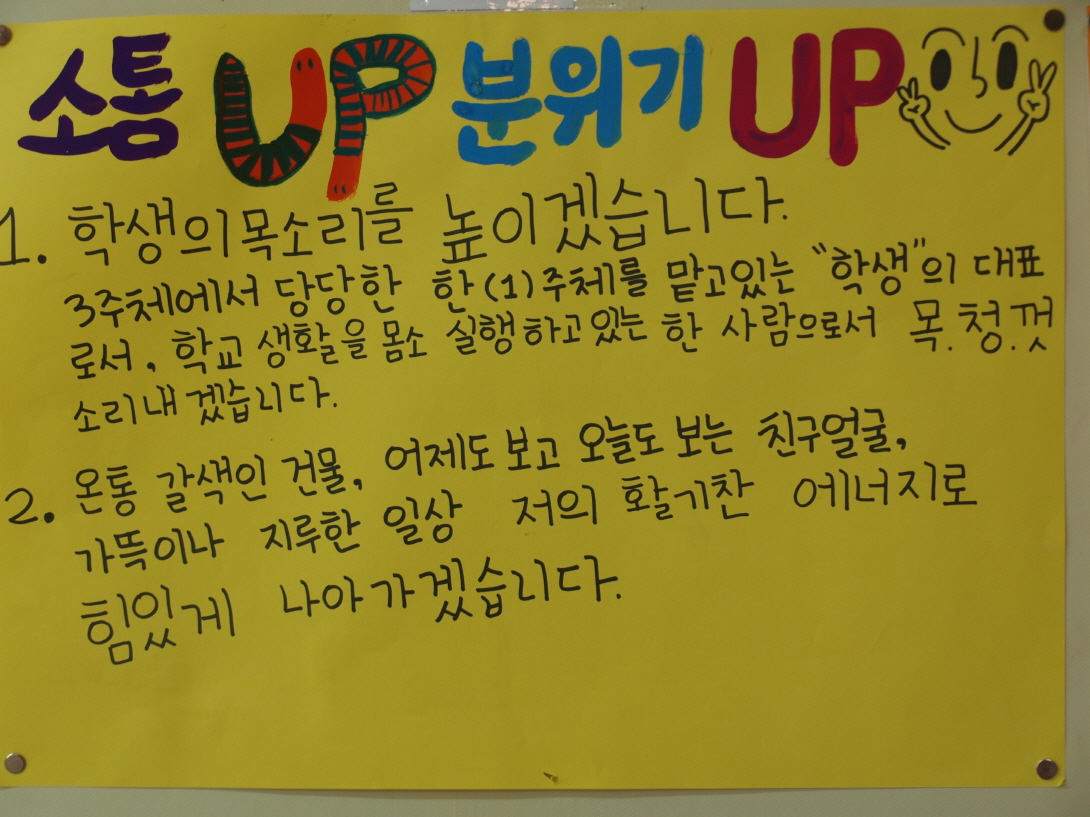 소통 UP 분위기 UP
1. 학생의 목소리를 높이겠습니다.
3주체에서 당당한 한(1)주체를 맡고있는 "학생"의 대표
로서, 학교 생활을 몸소 실행하고 있는 한 사람으로서 목.청.껏
소리내겠습니다.
2. 온통 갈색인 건물, 어제도 보고 오늘도 보는 친구얼굴,
가뜩이나 지루한 일상 저의 활기찬 에너지로
힘있게 나아가겠습니다.